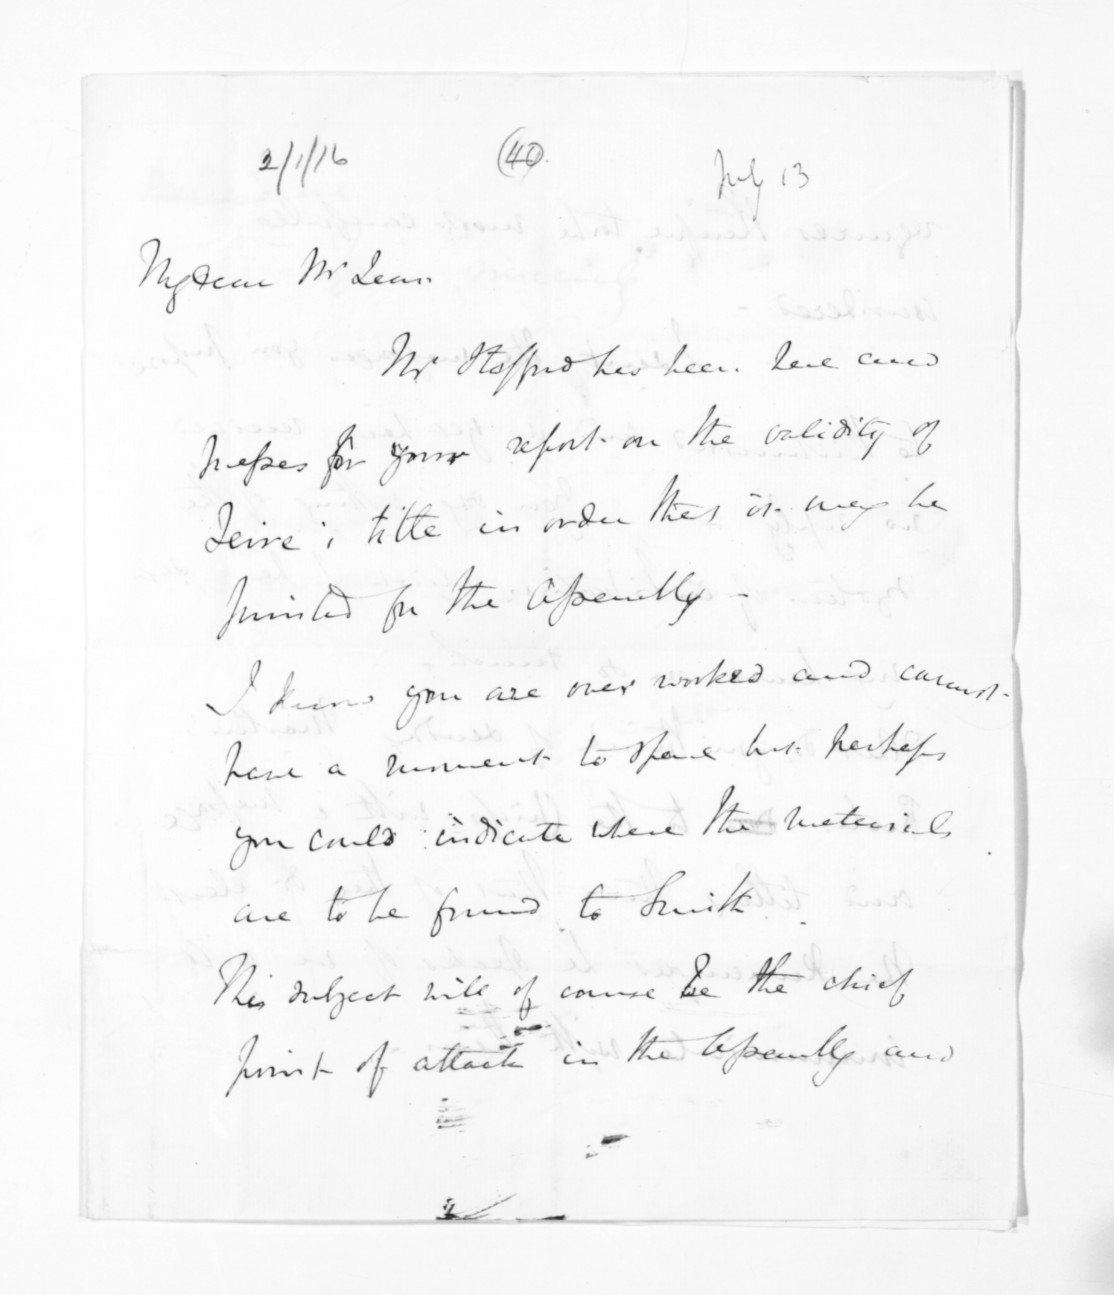 2/1/16 (40) July 13
My dear Mr Lean
Mr Stafford has been here and
presses for your report on the validity of
Teire's title in order that it may be
printed for the Assembly -
I know you are over worked and cannot
have a moment to spare but perhaps
you could indicate where the materials
are to be found to Smith.
This subject will of course be the chief
point of attack in the Assembly and